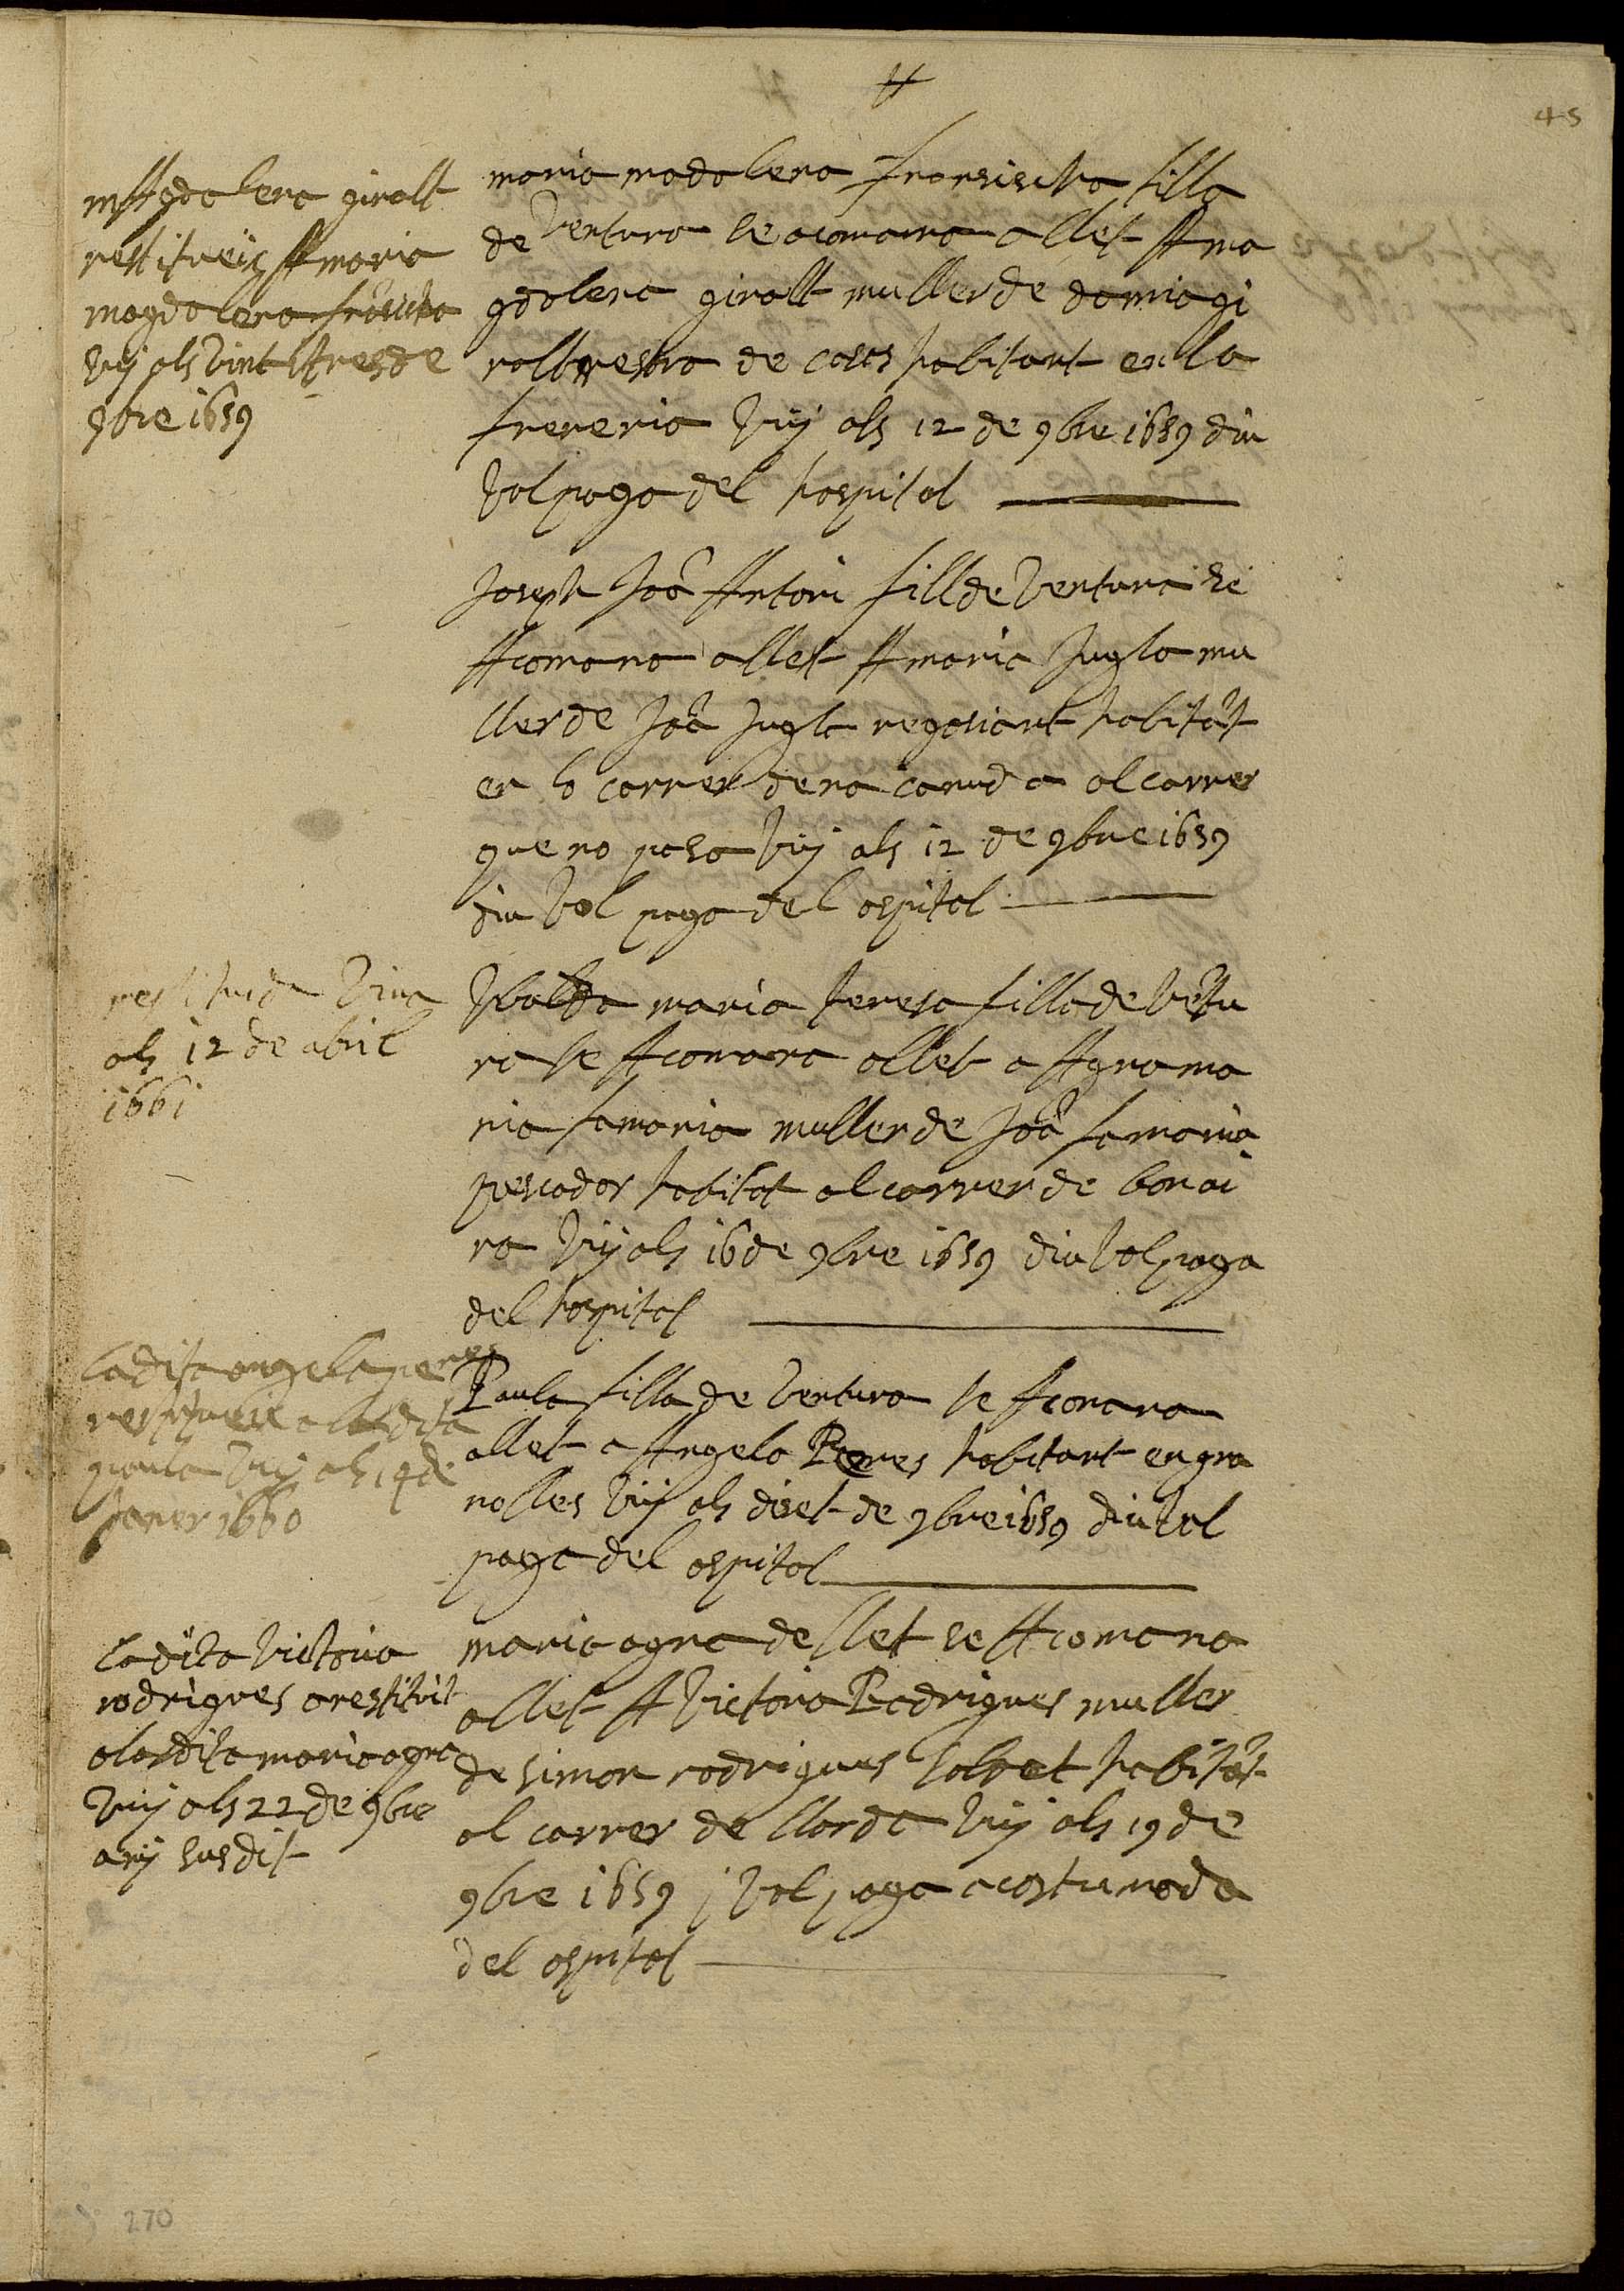 45
mAgdalena giralt
restitueix A maria
magdalena frāsischa
vuj als vint j tres de
9bre 1659
maria madalena fransischa filla
de ventura se acomana a llet A ma
gdalena giralt muller de damia gi
ralt mestra de cases habitant en la
freneria vuj als 12 de 9bre 1659 diu
vol paga del hospital
Joseph Joā Antoni fill de ventura se
Acomana a llet A maria Jugla mu
ller de Joā Jugla negosiant habitāt
en lo carrer de na canuda al carrer
que no pasa vuj als 12 de 9bre 1659
diu vol paga del ospital
restituida viva
als 12 de abril
1661
maria teresa filla de vētu
ra se Acomana a llet a Agna ma
ria samaria muller de Joā samaria
pescador habitāt al carrer de bonai
ra vuj als 16 de 9bre 1659 diu vol paga
del hospital
la dita angela peres
restitueix a la dita
paula vuj als 14 de
Janer 1660
Paula filla de ventura se Acomana
a llet a Angela Peres habitant en gra
nolles vuj als diset de 9bre 1659 diu vol
paga del ospital
la dita victoria
rodrigues a restituit
a la dita maria agna
vuj als 22 de 9bre
anj susdit
maria agna de llet se Acomana
a llet A victoria Rodrigues muller
de simon rodrigues soldat habitāt
al carrer de llorda vuj als 19 de
9bre 1659 j vol paga acostumada
del ospital
270